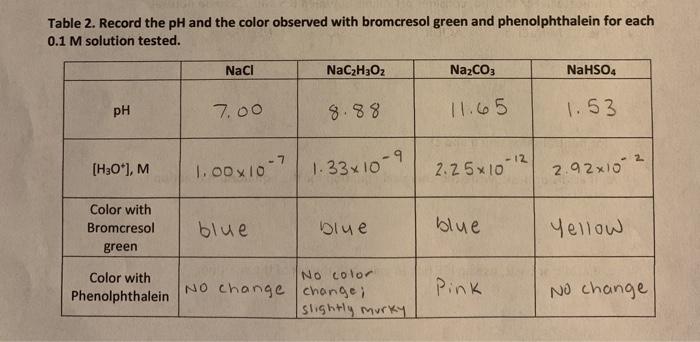 Table 2. Record the pH and the color observed with bromcresol green and phenolphthalein for each
0.1 M solution tested.
NaCl NaC₂H₃O₂ Na₂CO₃ NaHSO₄
pH 7.00 8.88 11.65 1.53
[H₃O⁺], M 1.00x10⁻⁷ 1.33x10⁻⁹ 2.25x10⁻¹² 2.92x10⁻²
Color with
Bromcresol
green
blue blue blue Yellow
Color with
Phenolphthalein
No change
No color
change;
slightly murky
Pink
No change